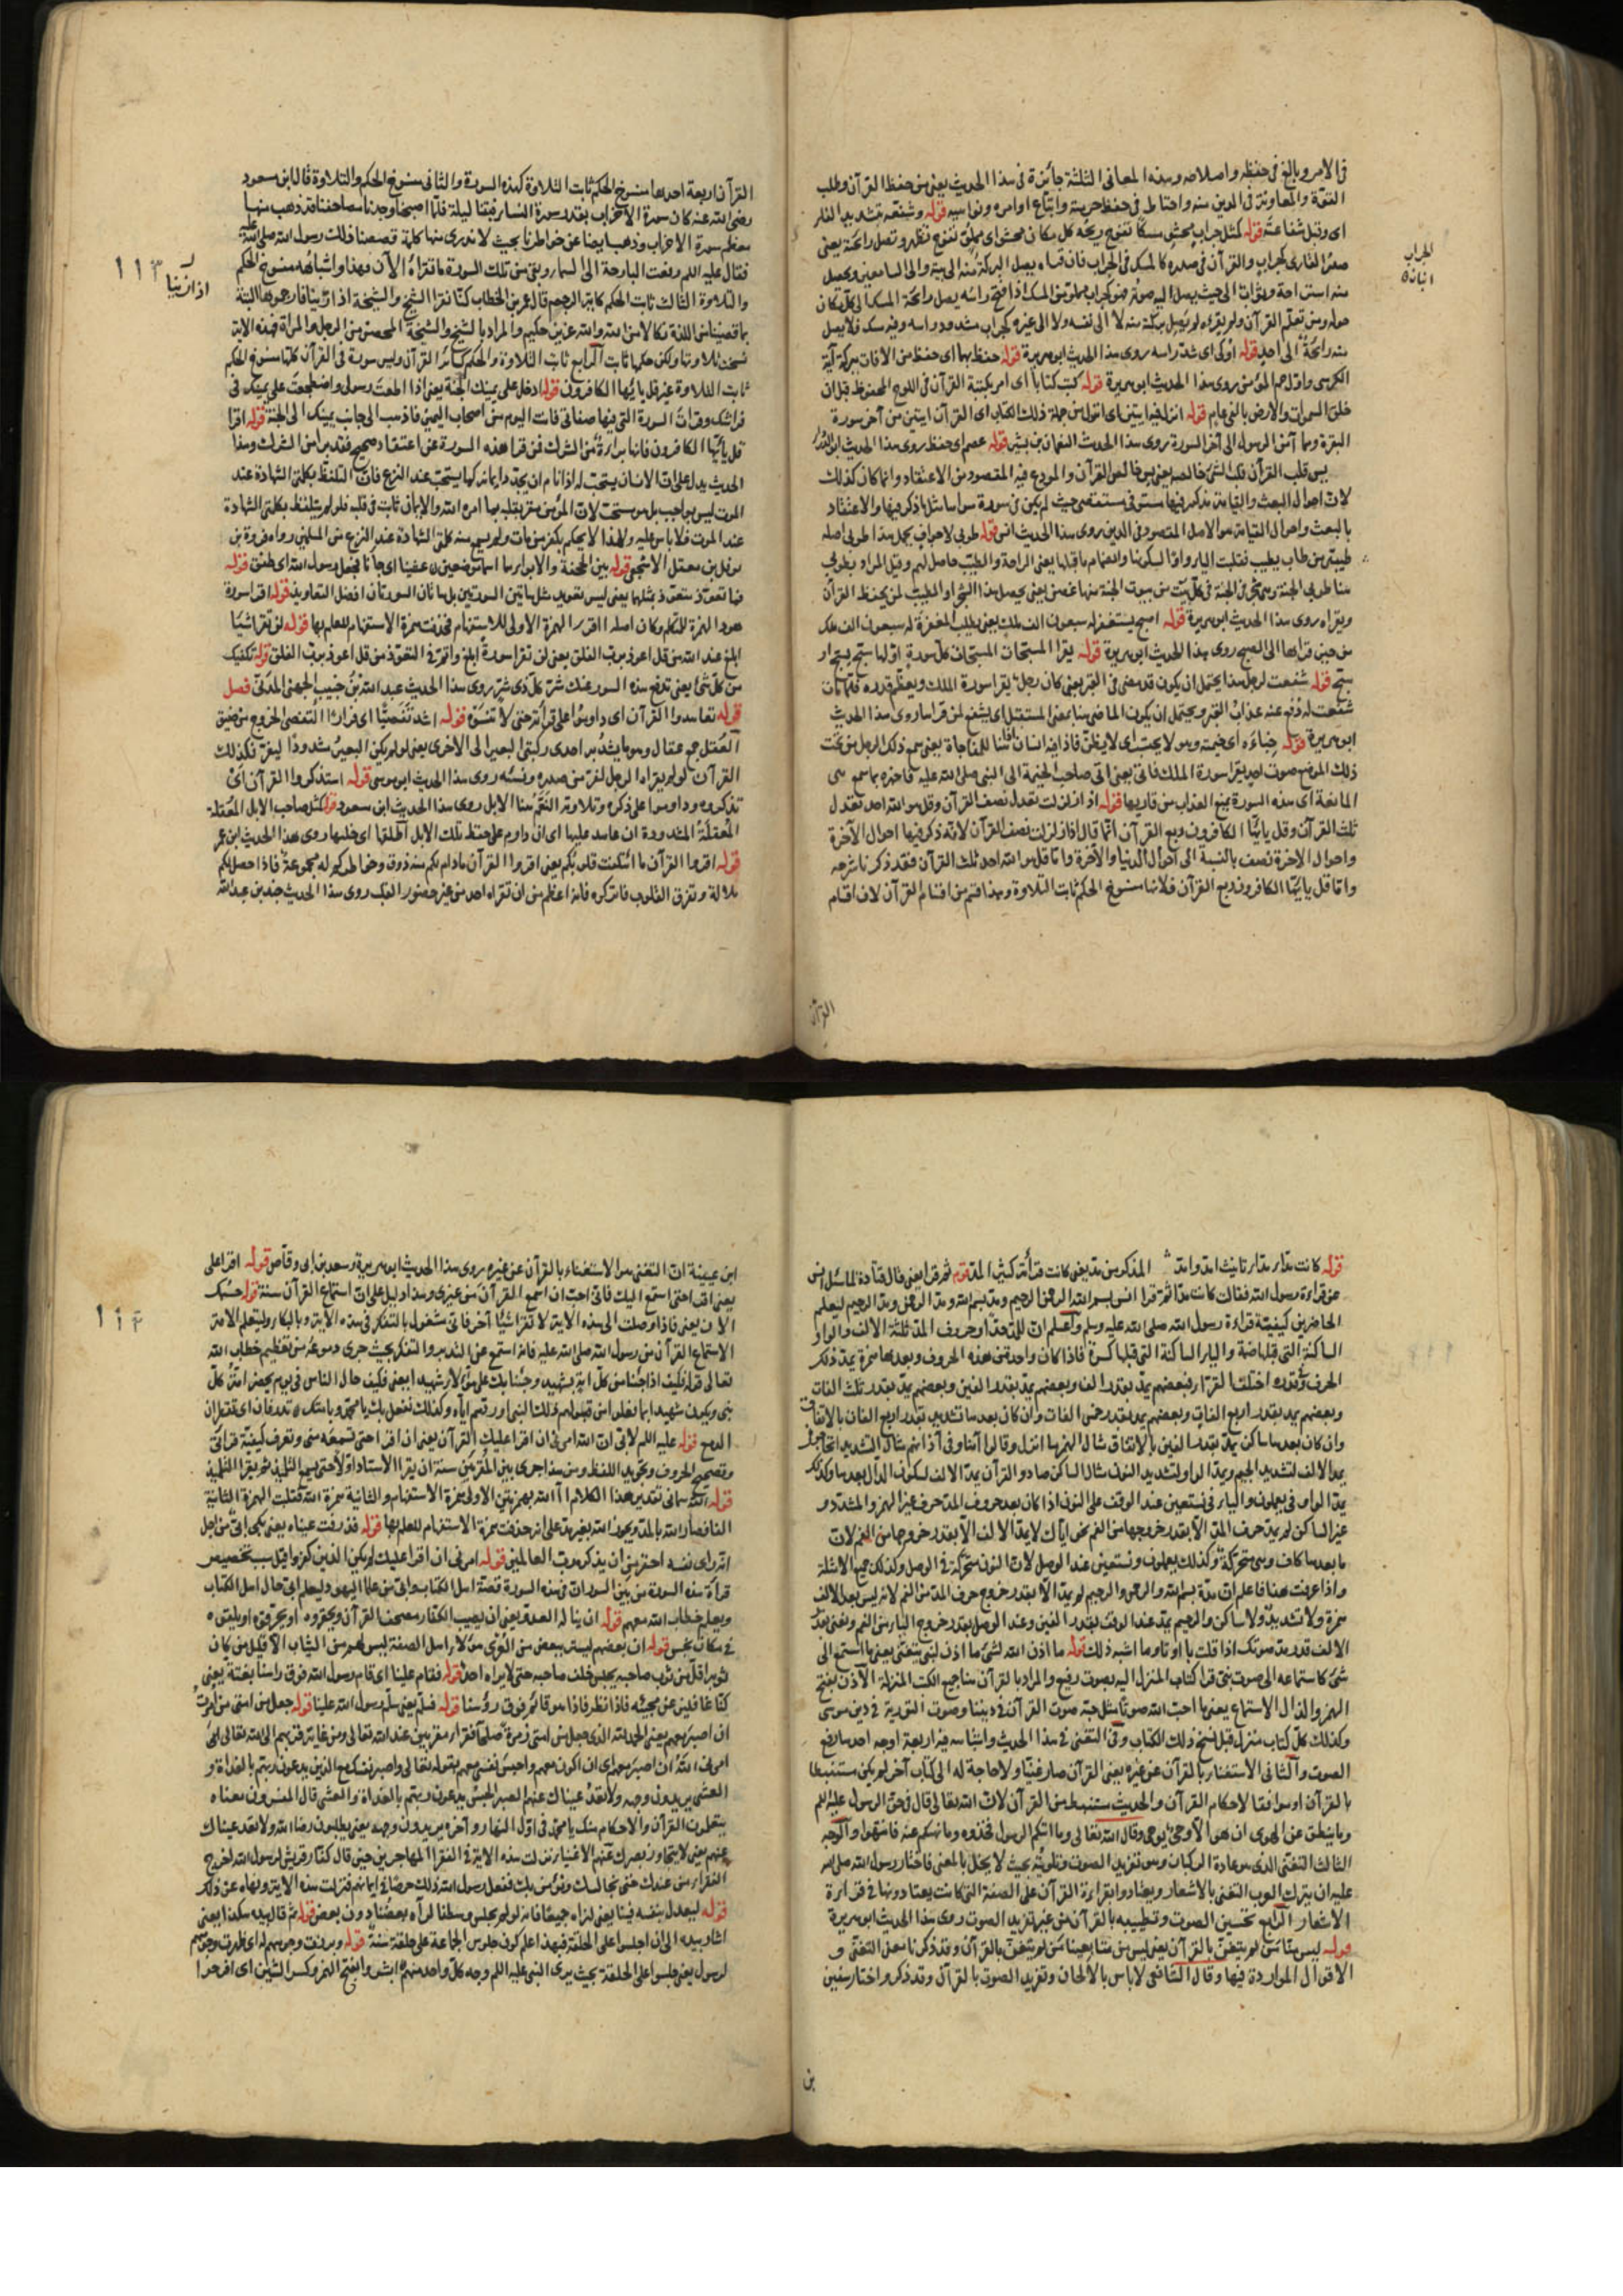 فى الامر وبالغ فى حفظه واصلاحه وهذه المعانى الثلثة جائزة فى هذا الحديث يعنى من حفظ القرآن وطلب
القوة والمعاونة فى الدين منه واحتاط فى حفظ حرمته واتباع اوامره ونواهيه قوله وشفعه بتشديد الفاء
اى وقبل شفاعته قوله كمثل جراب محشو مسكا تفوح ريحه كل مكان محشو اى مملو تفوح تظهر وتصل رائحته يعنى
صدر القارى كجراب والقرآن فى صدره كالمسك فى الجراب فان قراءه يصل البركة منه الى بيته والى السامعين ويحصل
منه استراحة وثواب الى حيث يصل اليه صوته فهو كجراب مملو من المسك اذا فتح رأسه يصل رائحة المسك الى كل مكان
حوله ومن تعلم القرآن ولم يقرءه لم يصل بركته منه لا الى نفسه ولا الى غيره كجراب مشدود رأسه وفيه مسك فلا يصل
منه رائحة الى احد قوله اوكى اى شد رأسه روى هذا الحديث ابوهريرة قوله حفظ بهما اى حفظ من الآفات ببركة آية
الكرسى واول حم المؤمن روى هذا الحديث ابوهريرة قوله كتب كتابا اى امر بكتبة القرآن فى اللوح المحفوظ قبل ان
خلق السموات والارض بالفى عام قوله انزل فيه آيتين اى انزل من جملة ذلك الكتاب اى القرآن آيتين من آخر سورة
البقرة وهما آمن الرسول الى آخر السورة روى هذا الحديث النعمان بن بشير قوله عصم اى حفظ روى هذا الحديث ابو الدرداء
يس قلب القرآن قلب الشئ خالصه يعنى يس خالص القرآن والمودع فيه المقصود من الاعتقاد وانما كان كذلك
لان احوال البعث والقيامة مذكور فيها مستوفى مستقصى حيث لم يكن فى سورة سواها مثل ما ذكر فيها والاعتقاد
بالبعث واحوال القيامة هو الاصل المقصود فى الدين روى هذا الحديث انس قوله طوبى لاجواف تحمل هذا طوبى اصله
طيبى من طاب يطيب فقلبت الياء واوا لسكونها وانضمام ما قبلها يعنى الراحة والطيب حاصل لهم وقيل المراد بطوبى
هنا طوبى الجنة وهى شجر فى الجنة فى كل بيت من بيوت الجنة منها غصن يعنى يحصل هذا الشجر والطيب لمن يحفظ القرآن
ويقراه روى هذا الحديث ابوهريرة قوله اصبح يستغفر له سبعون الف ملك يعنى يطلب المغفرة له سبعون الف ملك
من حين قراءتها الى الصبح روى هذا الحديث ابوهريرة قوله يقرا المسبحات المسبحات كل سورة اولها سبح يسبح او
سبح قوله شفعت لرجل هذا يحتمل ان يكون قد مضى فى القبر يعنى كان رجل يقرا سورة الملك ويعظم قدره فلما مات
شفعت له ودفع عنه عذاب القبر ويحتمل ان يكون الماضى هنا بمعنى المستقبل اى يشفع لمن قراها روى هذا الحديث
ابوهريرة قوله خباءه اى خيمته وهو لا يحسب اى لا يظن فاذا فيه انسان للمفاجاة يعنى سمع ذلك الرجل من تحت
ذلك الموضع صوت احد يقرا سورة الملك فاتى يعنى اتى صاحب الخيمة الى النبى صلى الله عليه فاخبره بما سمع هى
المانعة اى هذه السورة تمنع العذاب من قاريها قوله اذا زلزلت تعدل نصف القرآن وقل هو الله احد تعدل
ثلث القرآن وقل يا ايها الكافرون ربع القرآن انما قال اذا زلزلت نصف القرآن لانه ذكر فيها احوال الآخرة
واحوال الآخرة نصف بالنسبة الى احوال الدنيا والآخرة واما قل هو الله احد ثلث القرآن فقد ذكرنا شرحه
واما قل يا ايها الكافرون ربع القرآن فلانها منسوخ الحكم ثابت التلاوة وهذا قسم من اقسام القرآن لان اقسام
القرآن
القرآن اربعة احدها منسوخ الحكم ثابت التلاوة كهذه السورة والثانى منسوخ الحكم والتلاوة قال ابن مسعود
رضى الله عنه كان سورة الاحزاب بقدر سورة النساء فبتنا ليلة فلما اصبحنا وجدنا مصاحفنا قد ذهب منها
معظم سورة الاحزاب وذهب ايضا عن خواطرنا بحيث لا ندرى منها كلمة فقصصنا ذلك رسول الله صلى الله عليه
فقال عليه السلم رفعت البارحة الى السماء وبقى من تلك السورة ما نقراه الآن فهذا واشباهه منسوخ الحكم
والتلاوة الثالث ثابت الحكم كآية الرجم قال عمر بن الخطاب كنا نقرا الشيخ والشيخة اذا زنيا فارجموهما البتة
بما قضينا من اللذة نكالا من الله والله عزيز حكيم والمراد بالشيخ والشيخة المحصن من الرجل والمراة فهذه الآية
نسخت تلاوتها ولكن حكمها ثابت الرابع ثابت التلاوة والحكم كسائر القرآن وليس سورة فى القرآن كلها منسوخ الحكم
ثابت التلاوة غير قل يا ايها الكافرون قوله ادخل على يمينك الجنة يعنى اذا اطعت رسولى واضطجعت على يمينك فى
فراشك وقرات السورة التى فيها صفاتى فانت اليوم من اصحاب اليمين فاذهب الى جانب يمينك الى الجنة قوله اقرا
قل يا ايها الكافرون فانها براءة من الشرك فمن قرا هذه السورة عن اعتقاد صحيح فقد برا من الشرك وهذا
الحديث يدل على ان الانسان يستحب له اذا نام ان يجدد ايمانه كما يستحب عند النزع فان التلفظ بكلمتى الشهادة عند
الموت ليس بواجب بل هو مستحب لان المؤمن مقر بقلبه بما امره الله والايمان ثابت فى قلبه فلو لم يتلفظ بكلمتى الشهادة
عند الموت فلا باس عليه ولهذا لا يحكم بكفر من مات ولم يسمع منه كلمتى الشهادة عند النزع من المسلمين رواه فروة بن
نوفل بن معقل الاشجعى قوله بين الجحفة والابواء هما اسما موضعين غشينا اى جاءنا فجعل رسول الله اى طفق قوله
فما تعوذ متعوذ بمثلهما يعنى ليس تعويذ مثل هاتين السورتين بل هاتان السورتان افضل التعاويذ قوله اقرا سورة
هود الهمزة للتكلم وكان اصله ااقرا الهمزة الاولى للاستفهام فحذفت همزة الاستفهام للعلم بها قوله لن تقرا شيئا
ابلغ عند الله من قل اعوذ برب الفلق يعنى لن تقرا سورة ابلغ واتم فى التعوذ من قل اعوذ برب الفلق قوله تكفيك
من كل شئ يعنى تدفع هذه السور عنك شر كل ذى شر روى هذا الحديث عبد الله بن خبيب الجهنى المدنى فصل
قوله تعاهدوا القرآن اى داوموا على قرائته حتى لا تنسوه قوله اشد تفصيا اى فرارا التفصى الخروج من ضيق
العقل جمع عقال وهو ما يشد به احدى ركبتى البعير الى الاخرى يعنى لو لم يكن البعير مشدودا ليفر فكذلك
القرآن لو لم يقراه الرجل لفر من صدره ونسيه روى هذا الحديث ابوموسى قوله استذكروا القرآن اى
تذكروه وداوموا على ذكره وتلاوته النعم هنا الابل روى هذا الحديث ابن مسعود قوله كمثل صاحب الابل المعقلة
المعقلة المشدودة ان عاهد عليها اى ان داوم على حفظ تلك الابل اطلقها اى خلها روى هذا الحديث ابن عمر
قوله اقرءوا القرآن ما ائتلفت قلوبكم يعنى اقرءوا القرآن ما دام لكم منه ذوق وخواطركم له مجموعة فاذا حصل لكم
ملالة وتفرق القلوب فاتركوه فانه اعظم من ان تقراه احد من غير حضور القلب روى هذا الحديث جندب بن عبد الله
اذا زنيا
١١٣
قوله كانت مدا المذكور من مد يعنى كانت قراته كثير المد قوله ثم قرا يعنى قال قتادة لما سئل انس
عن قراءة رسول الله فقال كانت مدا ثم قرا انس بسم الله الرحمن الرحيم ومد بسم الله ومد الرحمن ومد الرحيم ليعلم
الحاضرين كيفية قراءة رسول الله صلى الله عليه وسلم واعلم ان للمد حدا وحروف المد ثلثة الالف والواو
الساكنة التى قبلها ضمة والياء الساكنة التى قبلها كسرة فاذا كان واحد من هذه الحروف وبعدها همزة يمد ذلك
الحرف وقدره اختلف القراء فبعضهم يمد بقدر الف وبعضهم يمد بقدر الفين وبعضهم يمد بقدر ثلث الفات
وبعضهم يمد بقدر اربع الفات وبعضهم يمد بقدر خمس الفات وان كان بعدها تشديد بقدر اربع الفات بالاتفاق
وان كان بعدها ساكن يمد بقدر الفين بالاتفاق مثال الهمزة بما انزل وقالوا آمنا وفى آذانهم مثال التشديد اتحاجونى
يمد الالف لتشديد الجيم ويمد الواو لتشديد النون مثال الساكن صاد والقرآن يمد الالف لسكون الدال بعدها وكذلك
يمد الواو فى يعلمون والياء فى نستعين عند الوقف على النون اذا كان بعد حروف المد حرف غير الهمز والمشدد و
غير الساكن لم يمد حرف المد الا بقدر خروجها من الفم نحو اياك لا يمد الالف الا بقدر خروجها من الفم لان
ما بعدها كاف وهى متحركة وكذلك يعلمون ونستعين عند الوصل لان النون متحركة فى الوصل وكذلك جميع الامثلة
واذا عرفت هذا فاعلم ان مدة بسم الله والرحمن والرحيم لم يمد الا بقدر خروج حرف المد من الفم لانه ليس بعد الالف
همزة ولا تشديد ولا ساكن والرحيم يمد عند الوقف بقدر الفين وعند الوصل بقدر خروج الياء من الفم ونعنى بمد
الالف قدر مد صوتك اذا قلت با او تا وما اشبه ذلك قوله ما اذن الله لشئ ما اذن لنبى يتغنى يعنى ما استمع الى
شئ كاستماعه الى صوت نبى قرا كتاب المنزل اليه بصوت رفيع والمراد بالقرآن هنا جميع الكتب المنزلة الاذن بفتح
الهمز والذال الاستماع يعنى ما احب الله صوتا مثل حبه صوت القرآن فى ديننا وصوت التورية فى دين موسى
وكذلك كل كتاب منزل قبل نسخ ذلك الكتاب وفى التغنى فى هذا الحديث واشباهه فيه اربعة اوجه احدها رفع
الصوت والثانى الاستغناء بالقرآن عن غيره يعنى القرآن صار غنيا ولا حاجة له الى كتاب آخر لم يكن مستنبطا
بالقرآن او موافقا لاحكام القرآن والحديث مستنبط من القرآن لان الله تعالى قال فى حق الرسول عليه السلم
وما ينطق عن الهوى ان هو الا وحى يوحى وقال الله تعالى وما آتيكم الرسول فخذوه وما نهيكم عنه فانتهوا والوجه
الثالث التغنى الذى هو عادة الركبان وهو تحزين الصوت وتلوينه بحيث لا يخل بالمعنى فاختار رسول الله صلى الله
عليه ان يترك العرب التغنى بالاشعار ويعتادوا بقراءة القرآن على الصفة التى كانت يعتادونها فى قراءة
الاشعار الرابع تحسين الصوت وتطييبه بالقرآن من غير تزيد الصوت روى هذا الحديث ابوهريرة
قوله ليس منا من لم يتغن بالقرآن يعنى ليس من متابعينا من لم يتغن بالقرآن وقد ذكرنا معنى التغنى و
الاقوال الواردة فيها وقال الشافعى لا باس بالالحان وتزيد الصوت بالقرآن وقد ذكر واختار سفين
بن
ابن عيينة ان التغنى هو الاستغناء بالقرآن عن غيره روى هذا الحديث ابوهريرة وسعد بن ابى وقاص قوله اقرا على
يعنى اقرا حتى استمع اليك فانى احب ان اسمع القرآن من غيرى وهذا دليل على ان استماع القرآن سنة قوله حسبك
الآن يعنى فاذا وصلت الى هذه الآية لا تقرا شيئا آخر فانى مشغول بالتفكر فى هذه الآية وبالبكاء وليتعلم الامة
الاستماع القرآن من رسول الله صلى الله عليه فانه استمع عن التدبر والتفكر بحيث جرى دموعه من تعظيم خطاب الله
تعالى قوله فكيف اذا جئنا من كل امة بشهيد وجئنا بك على هؤلاء شهيدا يعنى فكيف حال الناس فى يوم يحضر امة كل
نبى ويكون شهيدا بما فعلوا من قبولهم ذلك النبى او ردهم اياه وكذلك نفعل بك يا محمد وبامتك تذرفان اى تقطران
الدمع قوله عليه السلم لابى ان الله امرنى ان اقرا عليك القرآن يعنى ان اقرا حتى تسمعه منى وتعرف كيفية قراءتى
وتصحيح الحروف وتجويد اللفظ ومن هذا جرى بين المقرئين سنة ان يقرا الاستاد اولا حتى يسمع التلميذ ثم يقرا التلميذ
قوله آلله سمانى تقدير هذا الكلام أألله بهمزتين الاولى همزة الاستفهام والثانية همزة الله فقلبت الهمزة الثانية
الفا فصار آلله بالمد ويجوز الله بغير مد على انه حذفت همزة الاستفهام للعلم بها قوله فذرفت عيناه يعنى بكى ابى من اجل
انه راى نفسه احقر من ان يذكره رب العالمين قوله امرنى ان اقرا عليك لم يكن الذين كفروا قيل سبب تخصيص
قراءة هذه السورة من بين السورات ان فى هذه السورة قصة اهل الكتاب وابى من علماء اليهود ليعلم ابى حال اهل الكتاب
ويعلم خطاب الله معهم قوله ان يناله العدو يعنى ان يصيب الكفار مصحف القرآن ويحقروه او يحرقوه او يلقوه
فى مكان نجس قوله ان بعضهم ليستر ببعض من العرى من كان من اهل الصفة ليس لهم من الثياب الا قليل من كان
ثوبه اقل من ثوب صاحبه يجلس خلف صاحبه حتى لا يراه احد قوله فقام علينا اى قام رسول الله فوق راسنا بغتة يعنى
كنا غافلين عن مجيئه فاذا نظرنا فاذا هو قائم فوق رؤسنا قوله فسلم يعنى سلم رسول الله علينا قوله جعل من امتى من امرت
ان اصبر معهم يعنى الحمد لله الذى جعل من امتى زمرة صلحا فقراء مقربين عند الله تعالى ومن غاية قربهم الى الله تعالى انى
امرنى الله ان اصبر معهم اى ان اكون معهم واحبس نفسى معهم بقوله تعالى واصبر نفسك مع الذين يدعون ربهم بالغداة و
العشى يريدون وجهه ولا تعد عيناك عنهم الصبر الحبس يدعون ربهم بالغداة والعشى قال المفسرون معناه
يتعلمون القرآن والاحكام منك يا محمد فى اول النهار وآخره يريدون وجهه يعنى يطلبون رضا الله ولا تعد عيناك
عنهم يعنى لا يتجاوز بصرك عنهم الى الاغنياء نزلت هذه الآية فى الفقراء المهاجرين حين قال كفار قريش لرسول الله اخرج
الفقراء من عندك حتى نجالسك ونؤمن بك ففعل رسول الله ذلك حرصا فى ايمانهم فنزلت هذه الآية ونهاه عن ذلك
قوله ليعدل بنفسه فينا يعنى لنراه جميعا فانه لو لم يجلس وسطنا لرآه بعضنا دون بعض قوله ثم قال بيده هكذا يعنى
اشار بيده الى ان اجلسوا على الحلقة فبهذا اعلم كون جلوس الجماعة على حلقة سنة قوله وبرزت وجوههم له اى ظهرت وجوههم
لرسول يعنى جلسوا على الحلقة بحيث يرى النبى عليه السلم وجه كل واحد منهم ابشروا بفتح الهمز وكسر الشين اى افرحوا
١١٤